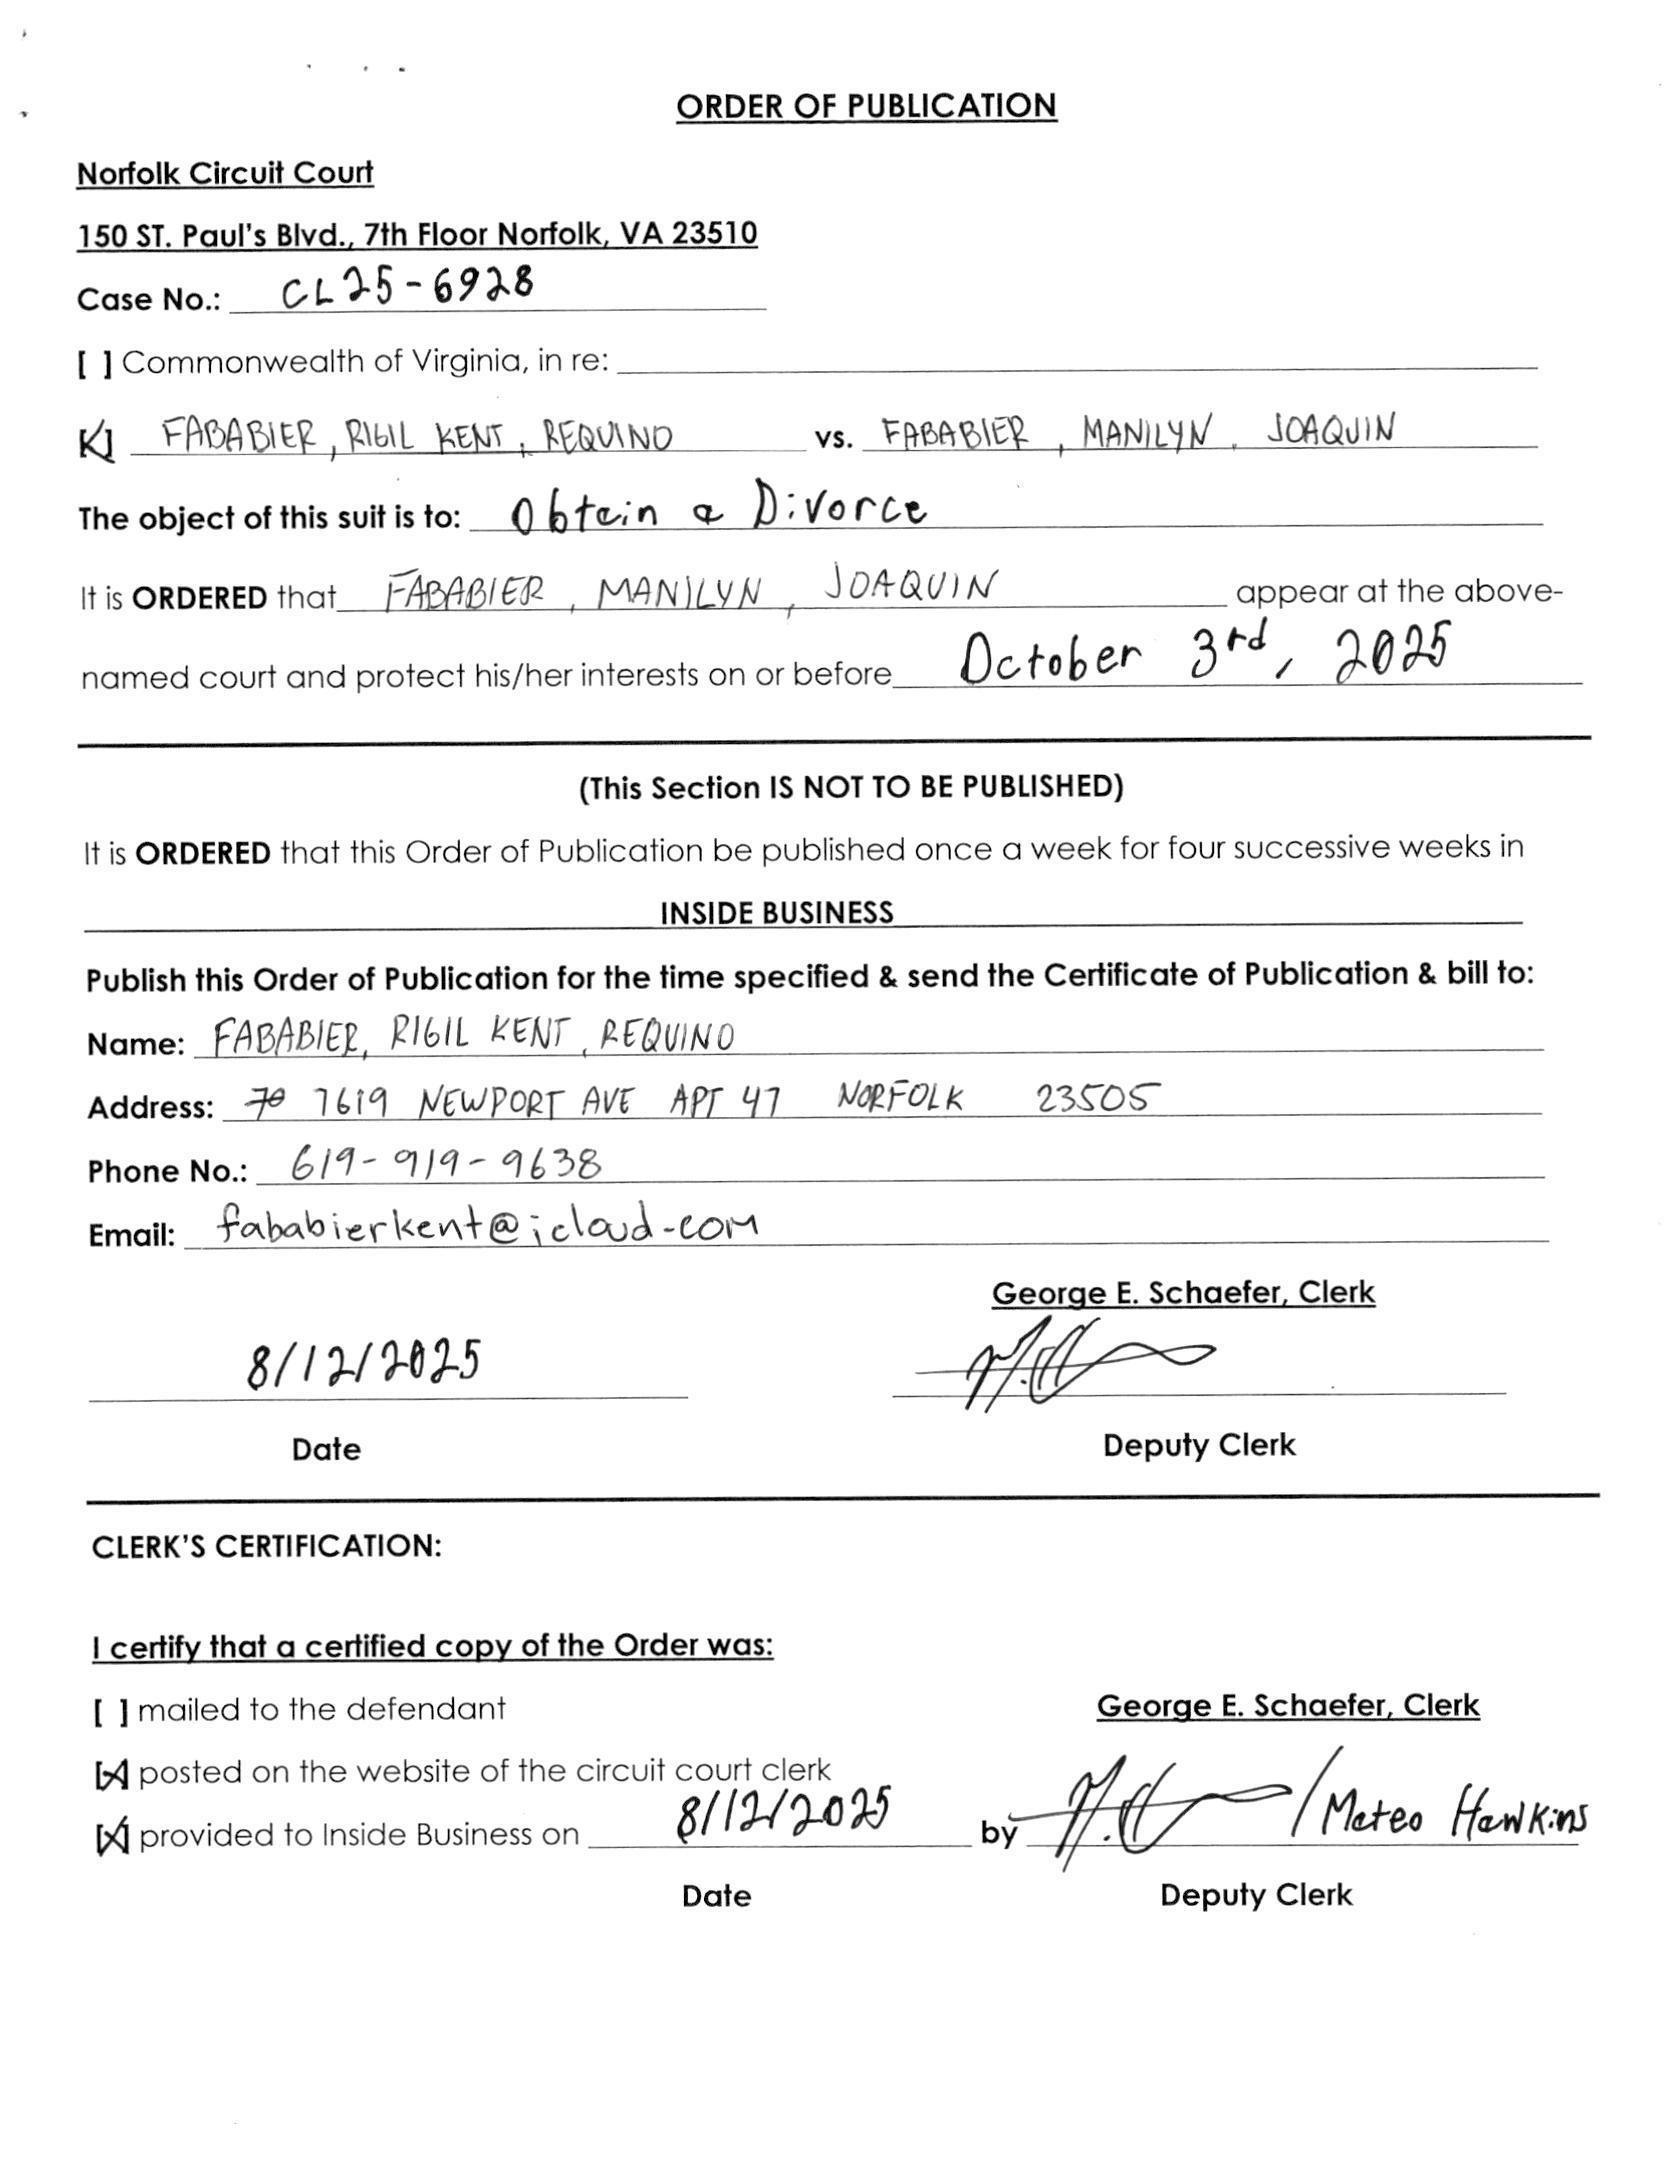 ORDER OF PUBLICATION
Norfolk Circuit Court
150 ST. Paul's Blvd., 7th Floor Norfolk, VA 23510
Case No.: CL25-6928
[ ] Commonwealth of Virginia, in re:
[X] FABABIER, RIGIL KENT, REQUINO vs. FABABIER, MANILYN, JOAQUIN
The object of this suit is to: Obtain a Divorce
It is ORDERED that FABABIER, MANILYN, JOAQUIN appear at the above-
named court and protect his/her interests on or before October 3rd, 2025
(This Section IS NOT TO BE PUBLISHED)
It is ORDERED that this Order of Publication be published once a week for four successive weeks in
INSIDE BUSINESS
Publish this Order of Publication for the time specified & send the Certificate of Publication & bill to:
Name: FABABIER, RIGIL KENT, REQUINO
Address: 7619 NEWPORT AVE APT 47 NORFOLK 23505
Phone No.: 619-919-9638
Email: fababierkent@icloud.com
George E. Schaefer, Clerk
8/12/2025
Date Deputy Clerk
CLERK'S CERTIFICATION:
I certify that a certified copy of the Order was:
[ ] mailed to the defendant George E. Schaefer, Clerk
[X] posted on the website of the circuit court clerk
[X] provided to Inside Business on 8/12/2025 by / Mateo Hawkins
Date Deputy Clerk